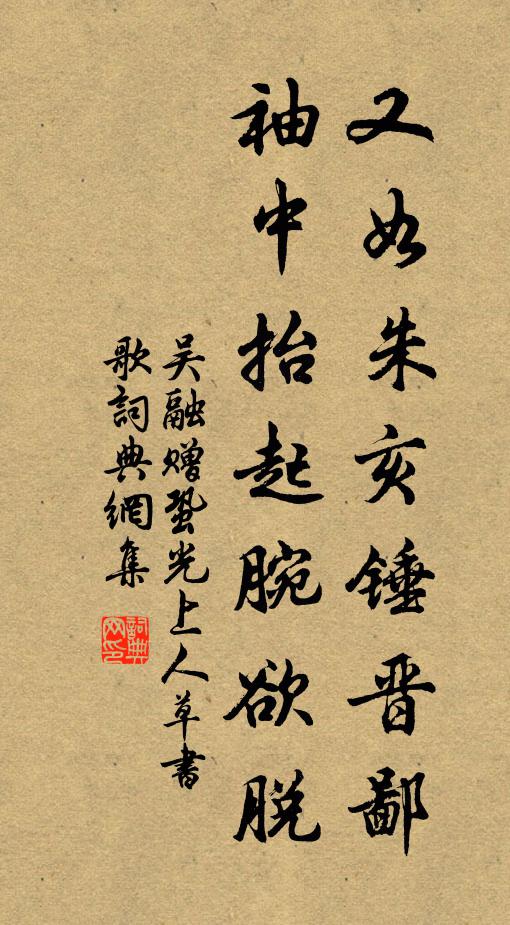 又如朱亥锤晋鄙
袖中抬起腕欲脱
吴融赠蛩光上人草書
歌詞典網集
詞典网印